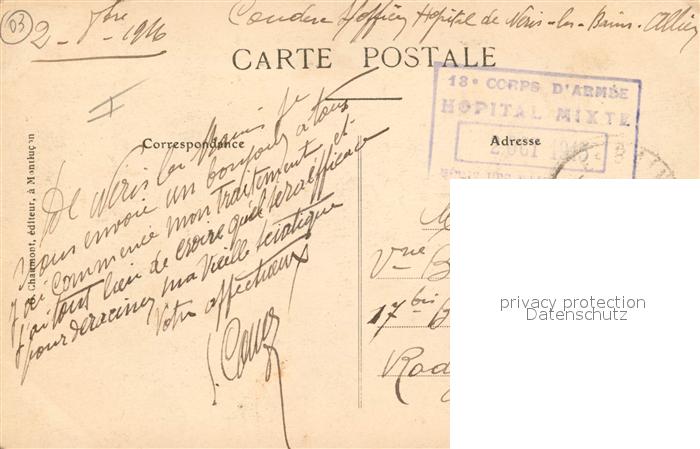 03
2 - 8bre - 1916
Hopital de Néris-les-Bains. Allier
CARTE POSTALE
13e CORPS D'ARMÉE
HOPITAL MIXTE
2 OCT 1916
Correspondance
Adresse
De Néris les Bains je
vous envoie un bonjour à tous
j'ai commencé mon traitement et
j'ai tout lieu de croire qu'il sera efficace
pour déraciner ma vieille sciatique
Votre affectionné
Chaumont, éditeur, à Montluçon
Vve B
17 bis
Rod
privacy protection
Datenschutz